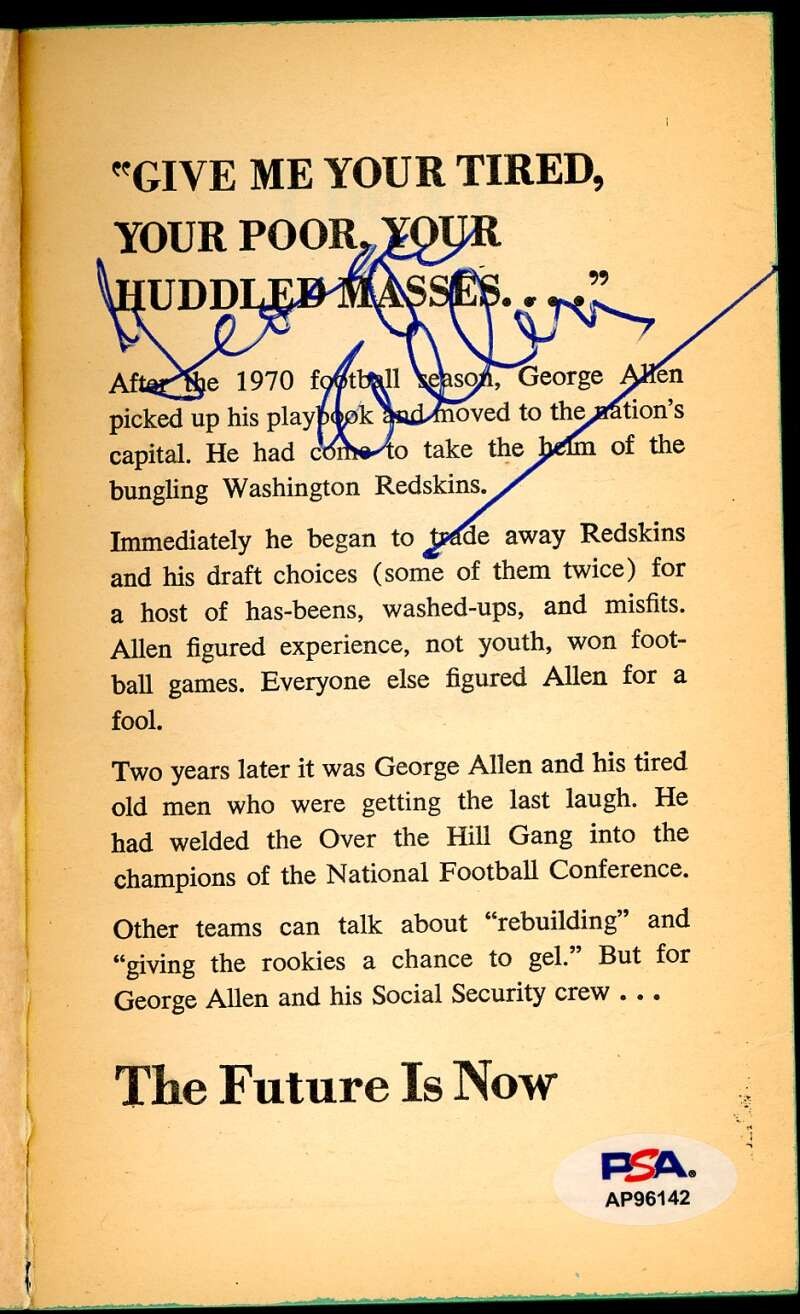 "GIVE ME YOUR TIRED,
YOUR POOR, YOUR
HUDDLED MASSES. . . ."
George
Allen
After the 1970 football season, George Allen
picked up his playbook and moved to the nation's
capital. He had come to take the helm of the
bungling Washington Redskins.
Immediately he began to trade away Redskins
and his draft choices (some of them twice) for
a host of has-beens, washed-ups, and misfits.
Allen figured experience, not youth, won foot-
ball games. Everyone else figured Allen for a
fool.
Two years later it was George Allen and his tired
old men who were getting the last laugh. He
had welded the Over the Hill Gang into the
champions of the National Football Conference.
Other teams can talk about "rebuilding" and
"giving the rookies a chance to gel." But for
George Allen and his Social Security crew . . .
The Future Is Now
PSA®
AP96142